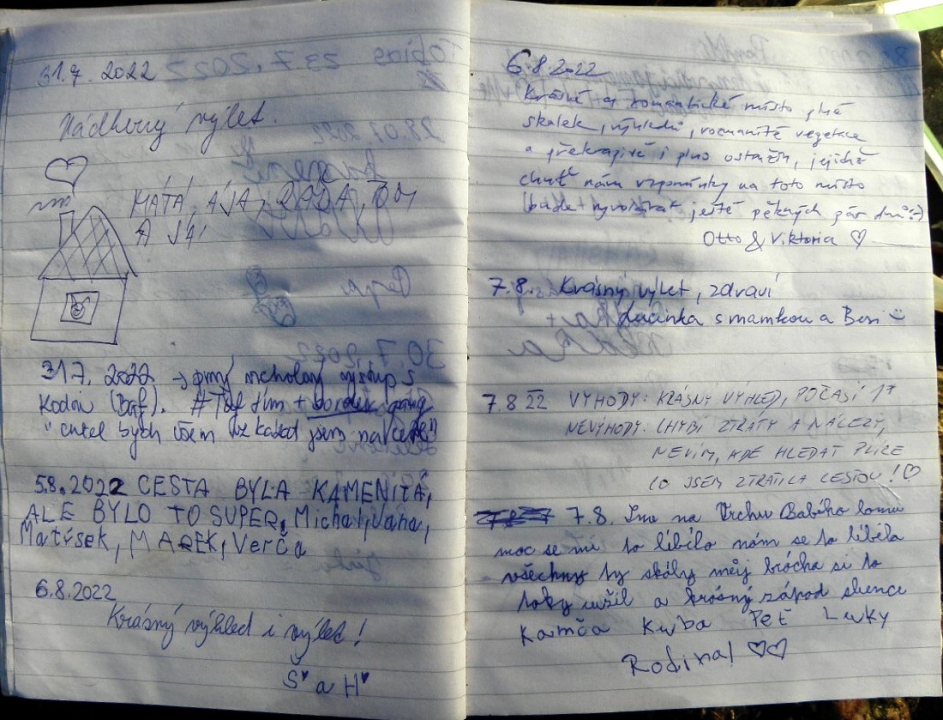 31.7.2022
Nádherný výlet.
MÁTA, AJA, RÁĎA, TOM
A JÁ!
31.7. 2022 → prvý vrcholový výstup s
Kodou (Baf). # Taf tím +
"chtěl bych všem jsem na
5.8.2022 CESTA BYLA KAMENITÁ,
ALE BYLO TO SUPER. Michal, Vaha,
Matýsek, MAREK, Verča
6.8.2022
Krásný výhled i výlet!
Š♥ a H♥
6.8.2022
Krásné a romantické místo plné
skalek, výhledů, rozmanité vegetace
a překvapivě i plno ostružin, jejichž
chuť nám vzpomínky na toto místo
bude vyvolávat ještě pěkných pár dnů :-)
Otto & Viktoria ♡
7.8. Krásný výlet, zdraví
Lucinka s mamkou a Ben
7.8 22 VÝHODY: KRÁSNÝ VÝHLED, POČASÍ 1*
NEVÝHODY: CHYBÍ ZTRÁTY A NÁLEZY,
NEVÍM, KDE HLEDAT PLÍCE
CO JSEM ZTRATILA CESTOU! ♡
7.8. Jsme na Vrchu Babího lomu
moc se mi to líbilo nám se to líbila
všechny ty skály můj brácha si to
taky užil a krásny západ slunce
Kamča Kuba Peť Luky
Rodina! ♡♡